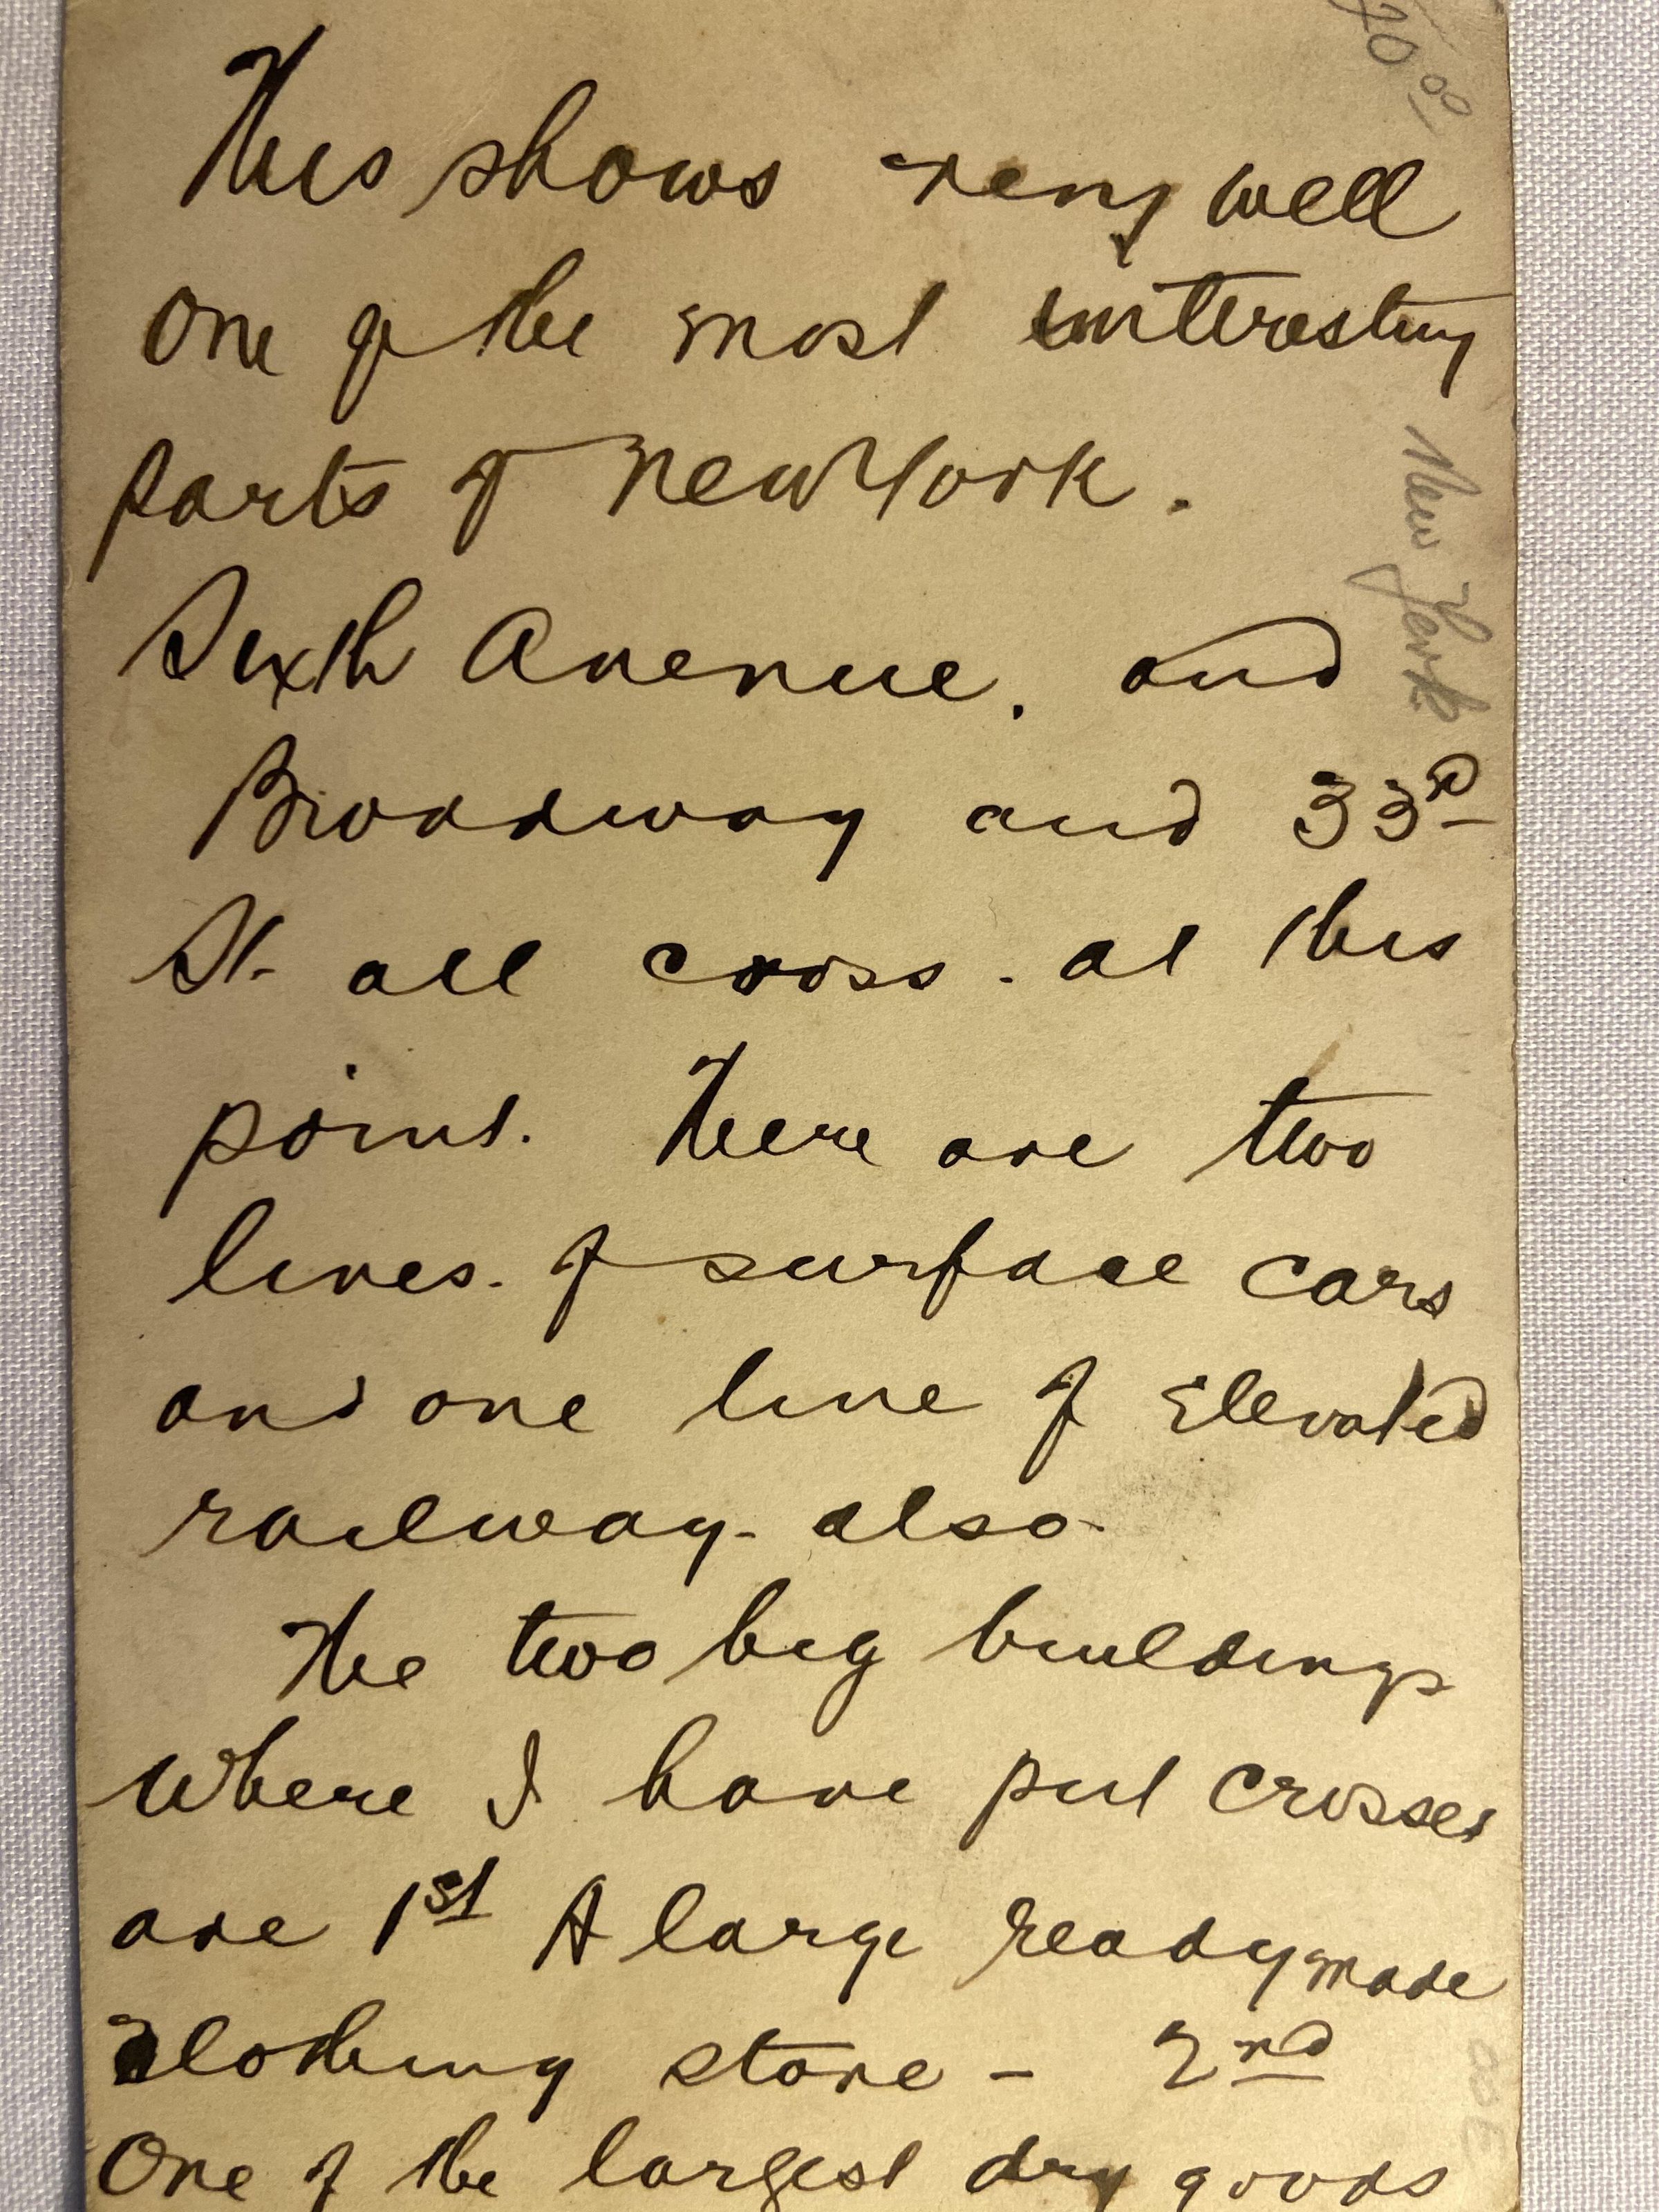 This shows very well
one of the most interesting
parts of New York.
Sixth Avenue. and
Broadway and 33rd
St. all cross. at this
point. There are two
lines. of surface cars
and one line of Elevated
railway. also.
The two big buildings
where I have put crosses
are 1st A large ready made
clothing store - 2nd
One of the largest dry goods
20 00
New York